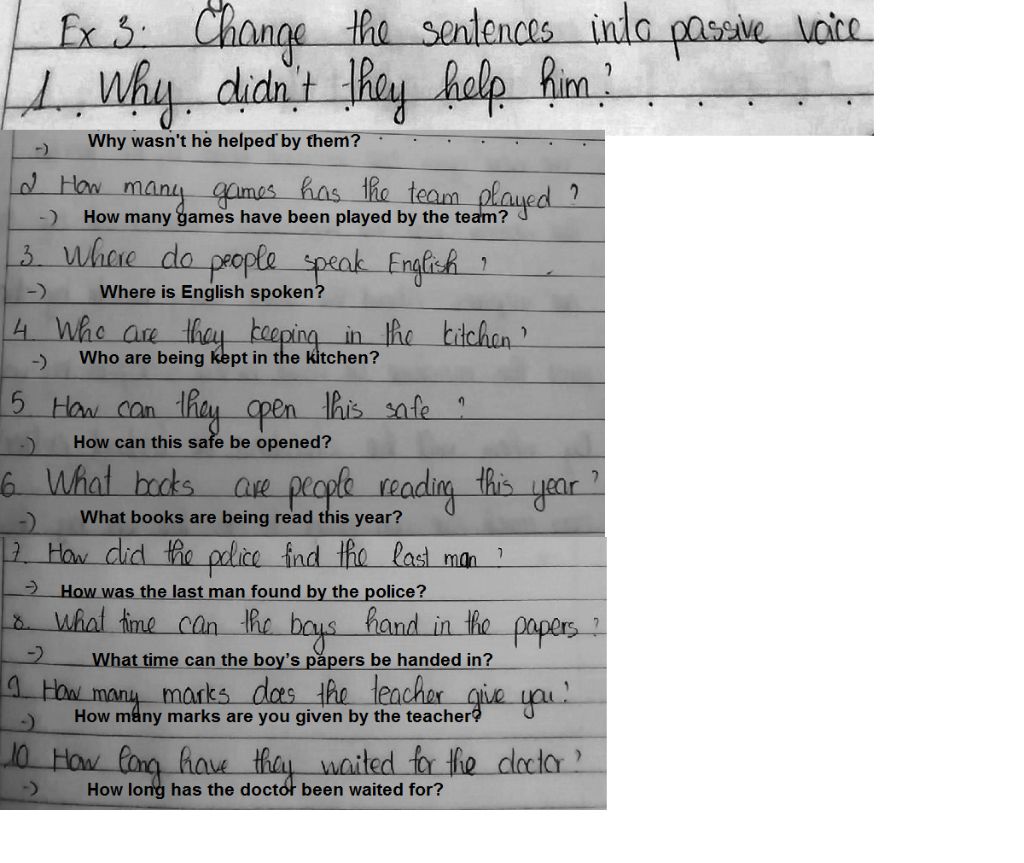 Ex 3: Change the sentences into passive voice
1. Why didn't they help him?
-) Why wasn't he helped by them?
2 How many games has the team played ?
-) How many games have been played by the team?
3. Where do people speak English ?
-) Where is English spoken?
4. Who are they keeping in the kitchen ?
-) Who are being kept in the kitchen?
5 How can they open this safe ?
-) How can this safe be opened?
6. What books are people reading this year ?
-) What books are being read this year?
7. How did the police find the last man ?
-) How was the last man found by the police?
8. What time can the boys hand in the papers ?
-) What time can the boy's papers be handed in?
9. How many marks does the teacher give you ?
-) How many marks are you given by the teacher?
10 How long have they waited for the doctor ?
-) How long has the doctor been waited for?